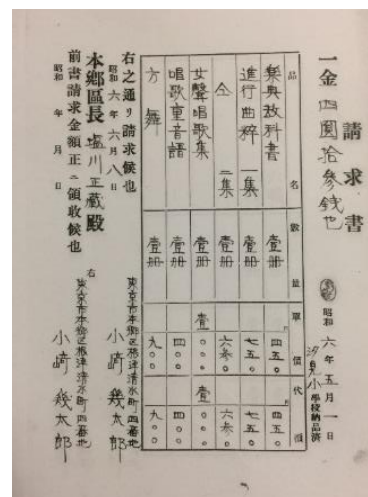 請求書
一金四圓拾參錢也
昭和六年五月一日
汐見小學校納品済
品名 數量 單價 代價
樂典教科書 壹册 四五〇 四五〇
進行曲粹一集 壹册 七五〇 七五〇
仝 二集 壹册 六參〇 六參〇
女聲唱歌集 壹册 壹〇〇 壹〇〇
唱歌重音譜 壹册 四〇〇 四〇〇
方舞 壹册 九〇〇 九〇〇
右之通リ請求候也
昭和六年六月八日
東京市本郷区根津清水町四番地
小﨑幾太郎
本郷區長塩川正藏殿
前書請求金額正ニ領收候也
昭和 年 月 日
右
東京市本郷区根津清水町四番地
小﨑幾太郎